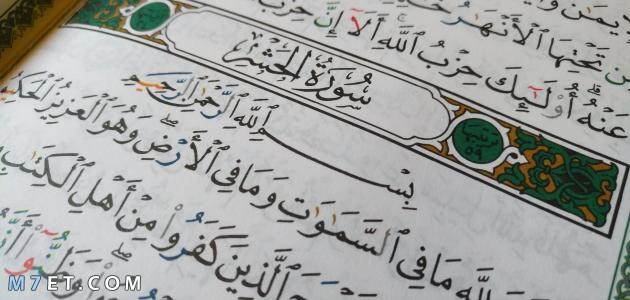 مِن تَحْتِهَا ٱلْأَنْهَـٰرُ خَـ
عَنْهُ أُوْلَـٰٓئِكَ حِزْبُ ٱللَّهِ أَلَآ إِنَّ حِزْبَ
سُورَةُ الحَشْرِ
ترتيبها ٥٩
بِسْمِ ٱللَّهِ ٱلرَّحْمَـٰنِ ٱلرَّحِيمِ
لِلَّهِ مَا فِى ٱلسَّمَـٰوَٰتِ وَمَا فِى ٱلْأَرْضِ وَهُوَ ٱلْعَزِيزُ ٱلْحَكِيمُ
ٱلَّذِينَ كَفَرُواْ مِنْ أَهْلِ ٱلْكِتَـٰبِ
وَظَنُّوٓاْ أَنَّـ
M7ET.COM